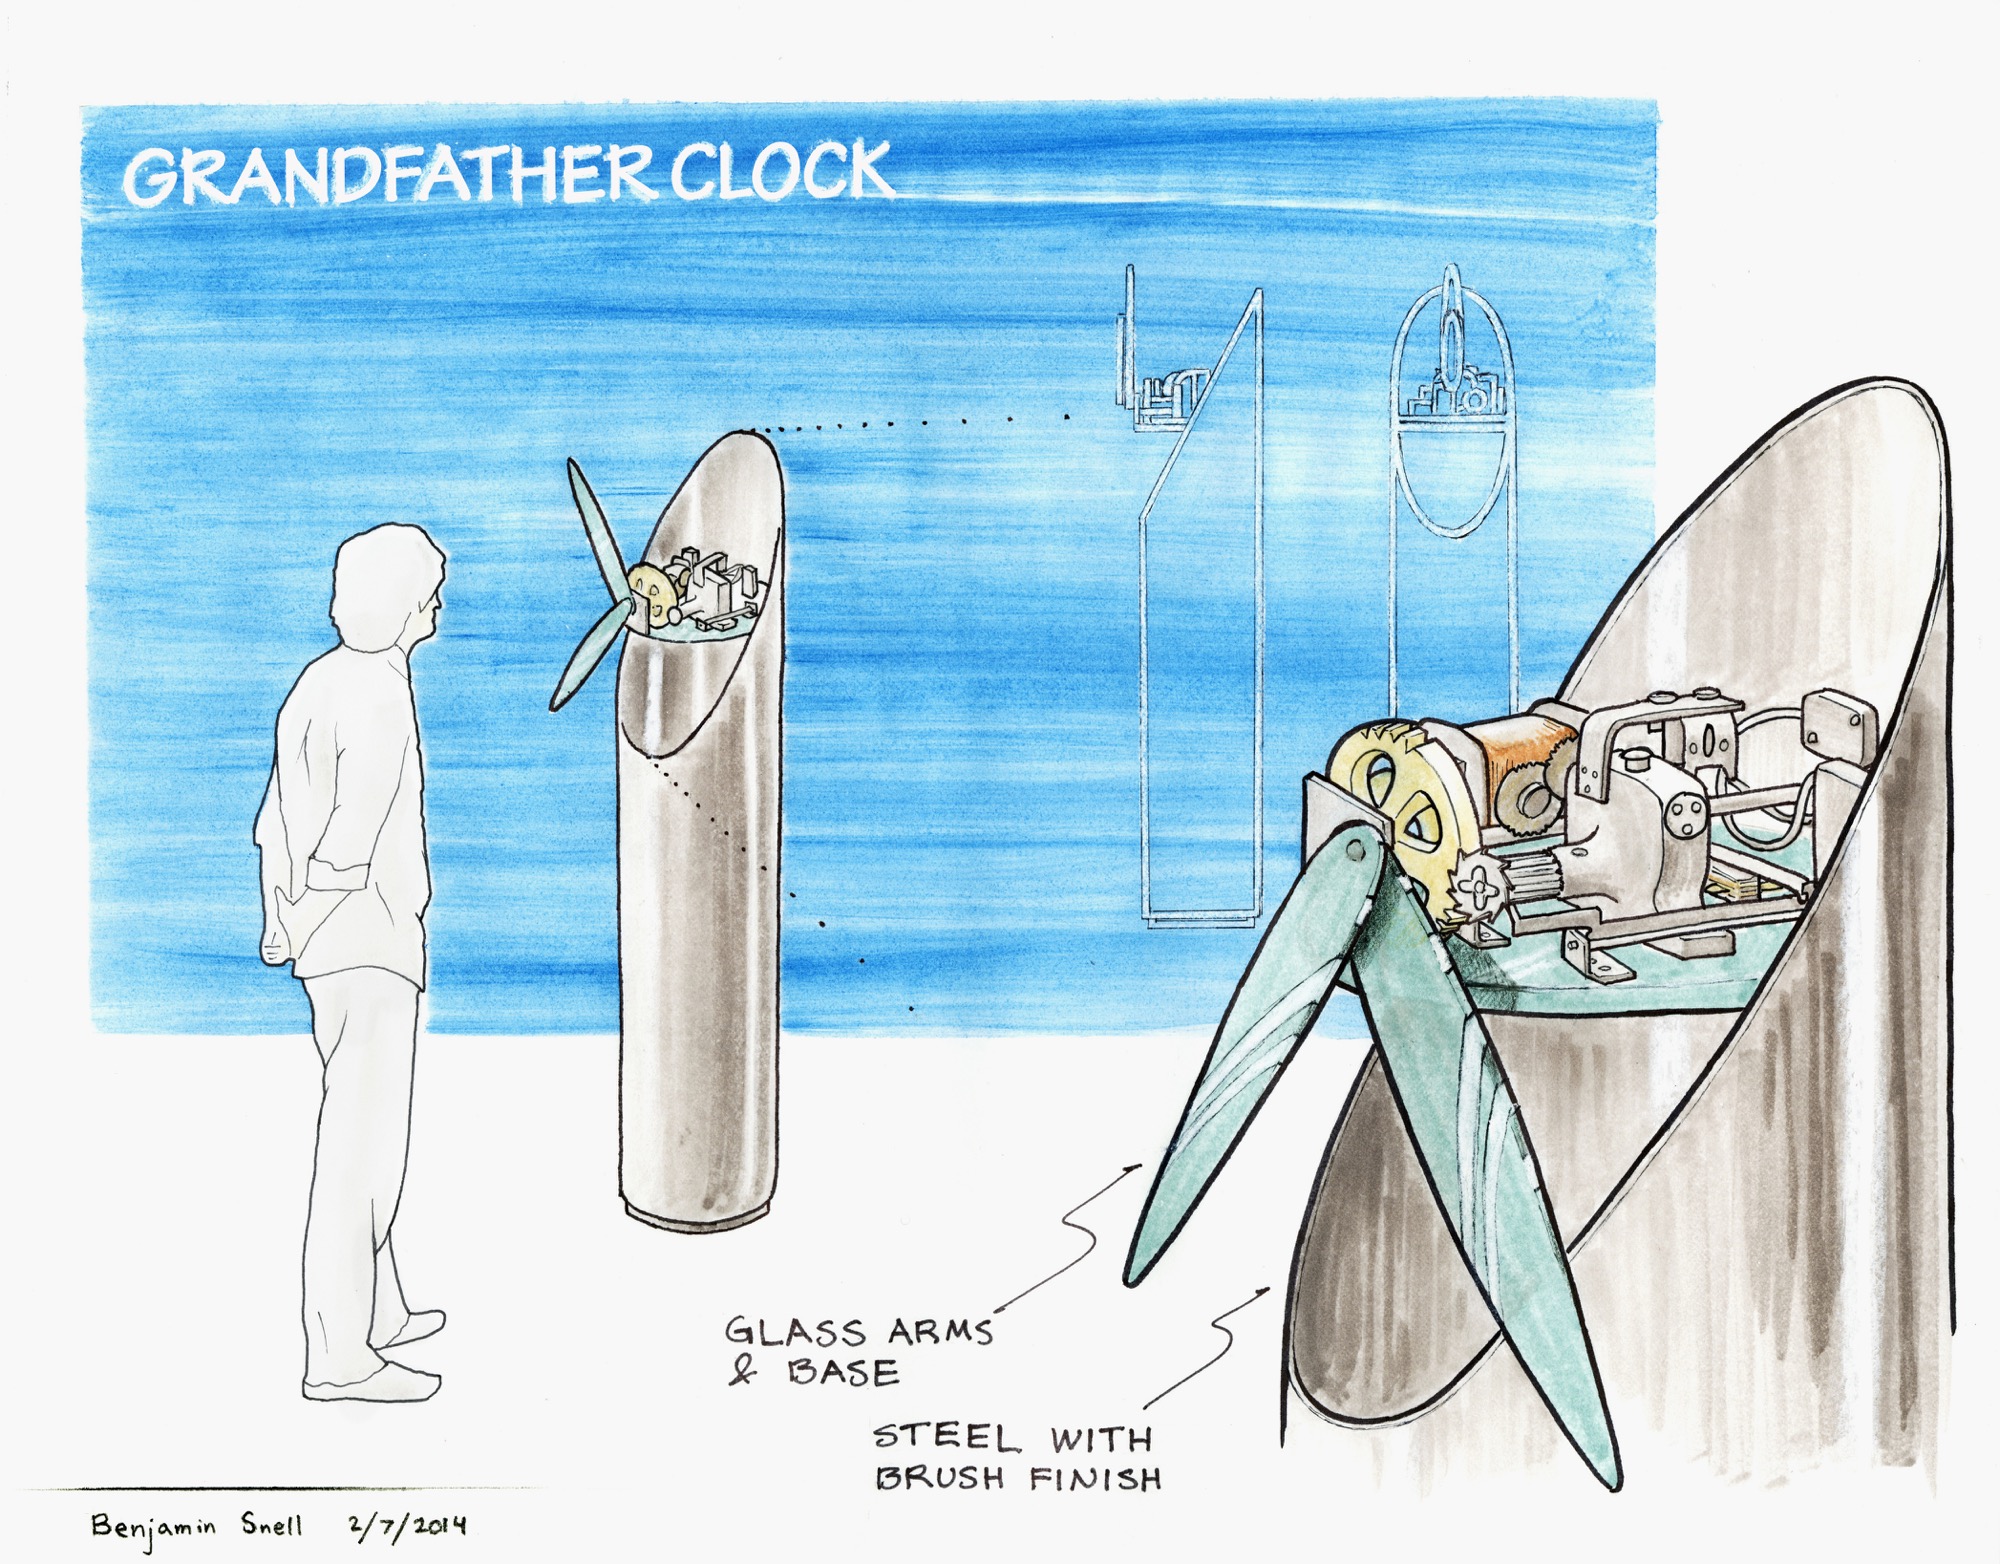 GRANDFATHER CLOCK
GLASS ARMS
& BASE
STEEL WITH
BRUSH FINISH
Benjamin Snell 2/7/2014